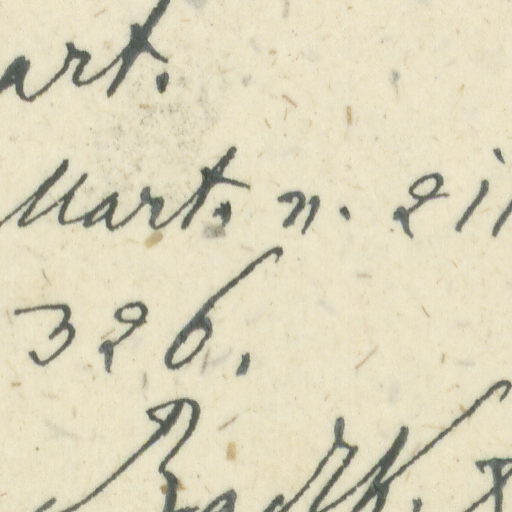 art.
Mart. n. 211
326.